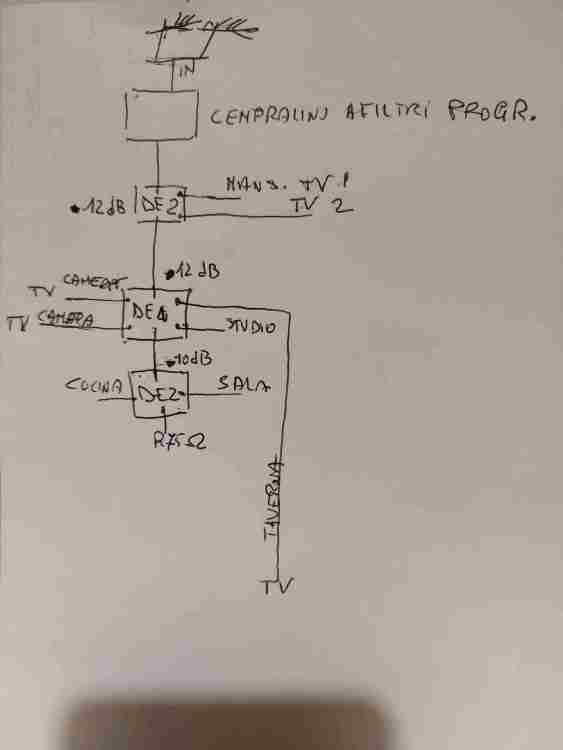 IN
CENTRALINO A FILTRI PROGR.
MANS. TV 1
-12dB DE2
TV 2
-12dB
TV CAMERA
DE4
TV CAMERA
STUDIO
-10dB
CUCINA
DE2
SALA
R75Ω
TAVERNA
TV